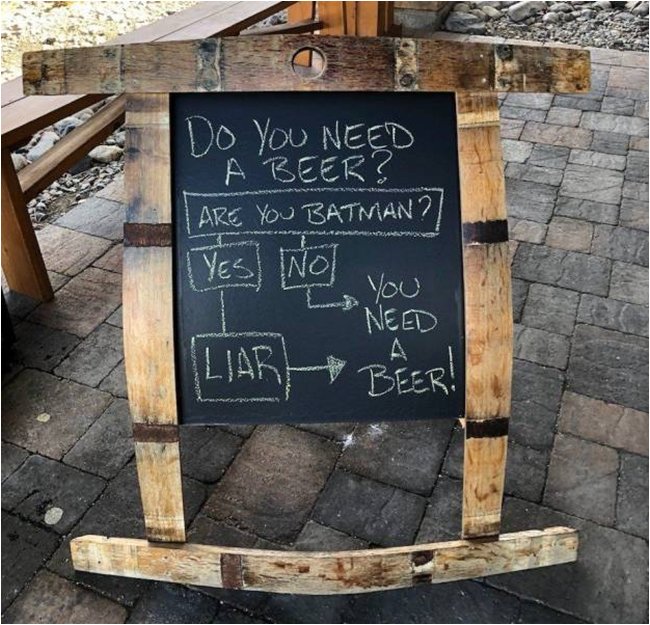 DO YOU NEED
A BEER?
ARE YOU BATMAN?
YES NO
YOU
NEED
A
LIAR
BEER!